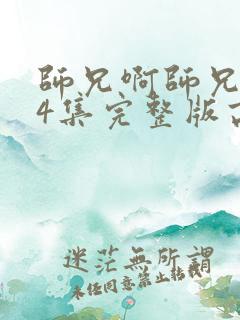 師兄啊師兄
4集完整版
迷茫無所謂
未任同意禁止转载